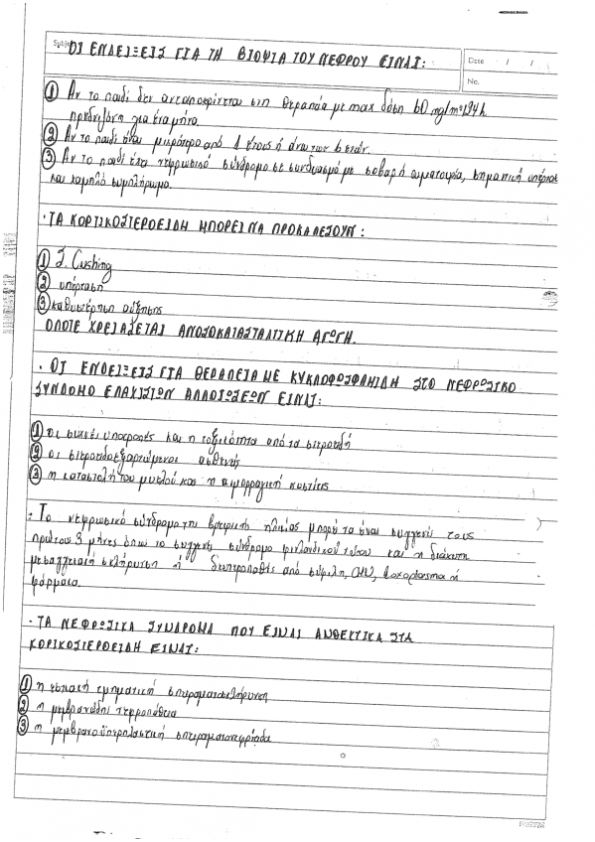 Subject
ΟΙ ΕΝΔΕΙΞΕΙΣ ΓΙΑ ΤΗ ΒΙΟΨΙΑ ΤΟΥ ΝΕΦΡΟΥ ΕΙΝΑΙ:
Date / /
No.
① Αν το παιδί δεν ανταποκρίνεται στη θεραπεία με max δόση 60 mg/m²/24h
πρεδνιζόνη για ένα μήνα.
② Αν το παιδί είναι μικρότερο από 1 έτους ή άνω των 8 ετών.
③ Αν το παιδί έχει νεφρωσικό σύνδρομο σε συνδυασμό με σοβαρή αιματουρία, σημαντική υπέρταση
και χαμηλό συμπλήρωμα.
· ΤΑ ΚΟΡΤΙΚΟΣΤΕΡΟΕΙΔΗ ΜΠΟΡΕΙ ΝΑ ΠΡΟΚΑΛΕΣΟΥΝ:
① Σ. Cushing
② υπέρταση
③ καθυστέρηση αύξησης
ΟΠΟΤΕ ΧΡΕΙΑΖΕΤΑΙ ΑΝΟΣΟΚΑΤΑΣΤΑΛΤΙΚΗ ΑΓΩΓΗ.
· ΟΙ ΕΝΔΕΙΞΕΙΣ ΓΙΑ ΘΕΡΑΠΕΙΑ ΜΕ ΚΥΚΛΟΦΩΣΦΑΜΙΔΗ ΣΤΟ ΝΕΦΡΩΣΙΚΟ
ΣΥΝΔΟΜΟ ΕΛΑΧΙΣΤΩΝ ΑΛΛΟΙΩΣΕΩΝ ΕΙΝΑΙ:
① οι συχνές υποτροπές και η τοξικότητα από τα στεροειδή
② οι στεροειδοεξαρτώμενοι ασθενείς
③ η καταστολή του μυελού και η αιμορραγική κυστίτις
· Το νεφρωσικό σύνδρομο της βρεφικής ηλικίας μπορεί να είναι συγγενές τους
πρώτους 3 μήνες όπως το συγγενές σύνδρομο φινλανδικού τύπου και η διάχυτη
μεσαγγειακή σκλήρυνση ή δευτεροπαθές από σύφιλη, CMV, toxoplasma ή
φάρμακα.
· ΤΑ ΝΕΦΡΩΣΙΚΑ ΣΥΝΔΡΟΜΑ ΠΟΥ ΕΙΝΑΙ ΑΝΘΕΚΤΙΚΑ ΣΤΑ
ΚΟΡΙΚΟΣΤΕΡΟΕΙΔΗ ΕΙΝΑΙ:
① η εστιακή τμηματική σπειραματοσκλήρυνση
② η μεμβρανώδης νεφροπάθεια
③ η μεμβρανοϋπερπλαστική σπειραματονεφρίτιδα